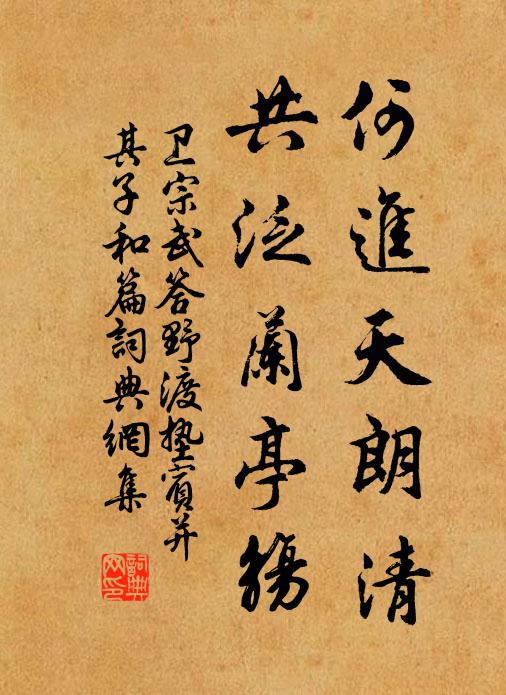 何進天朗清
共泛蘭亭觴
卫宗武答野渡垫賓并
其子和篇詞典網集
詞典网印